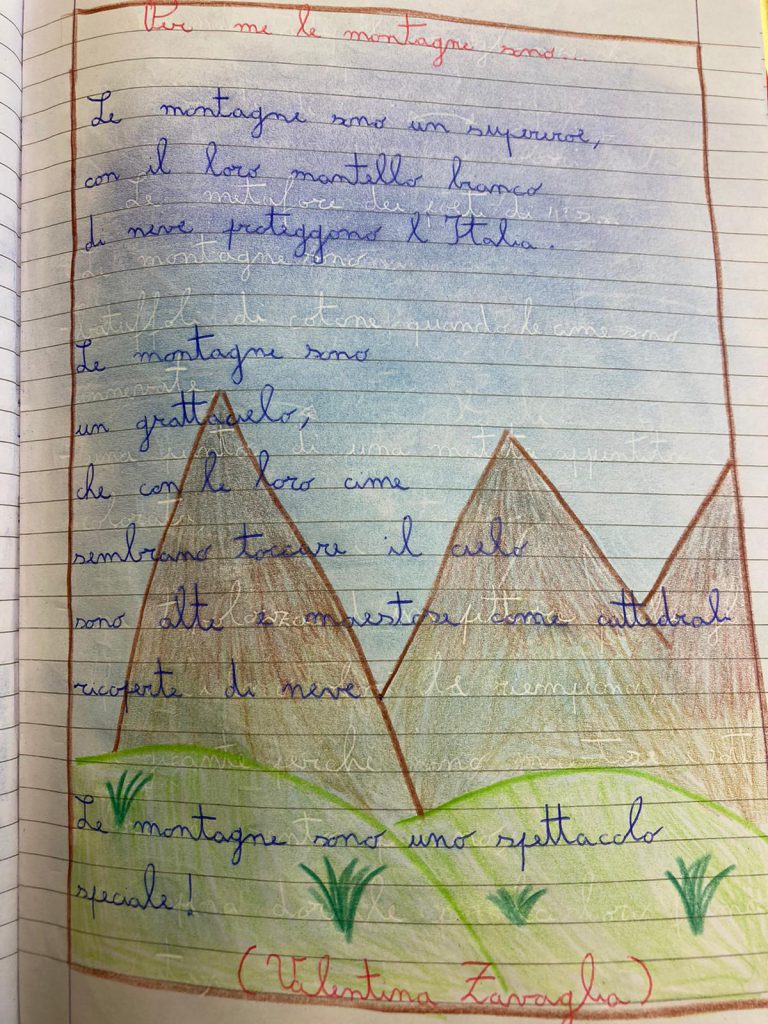 Per me le montagne sono...
Le montagne sono un supereroe,
con il loro mantello bianco
di neve proteggono l'Italia.
Le montagne sono
un grattacielo,
che con le loro cime
sembrano toccare il cielo
sono alte e maestose come cattedrali
ricoperte di neve
Le montagne sono uno spettacolo
speciale!
(Valentina Zavaglia)